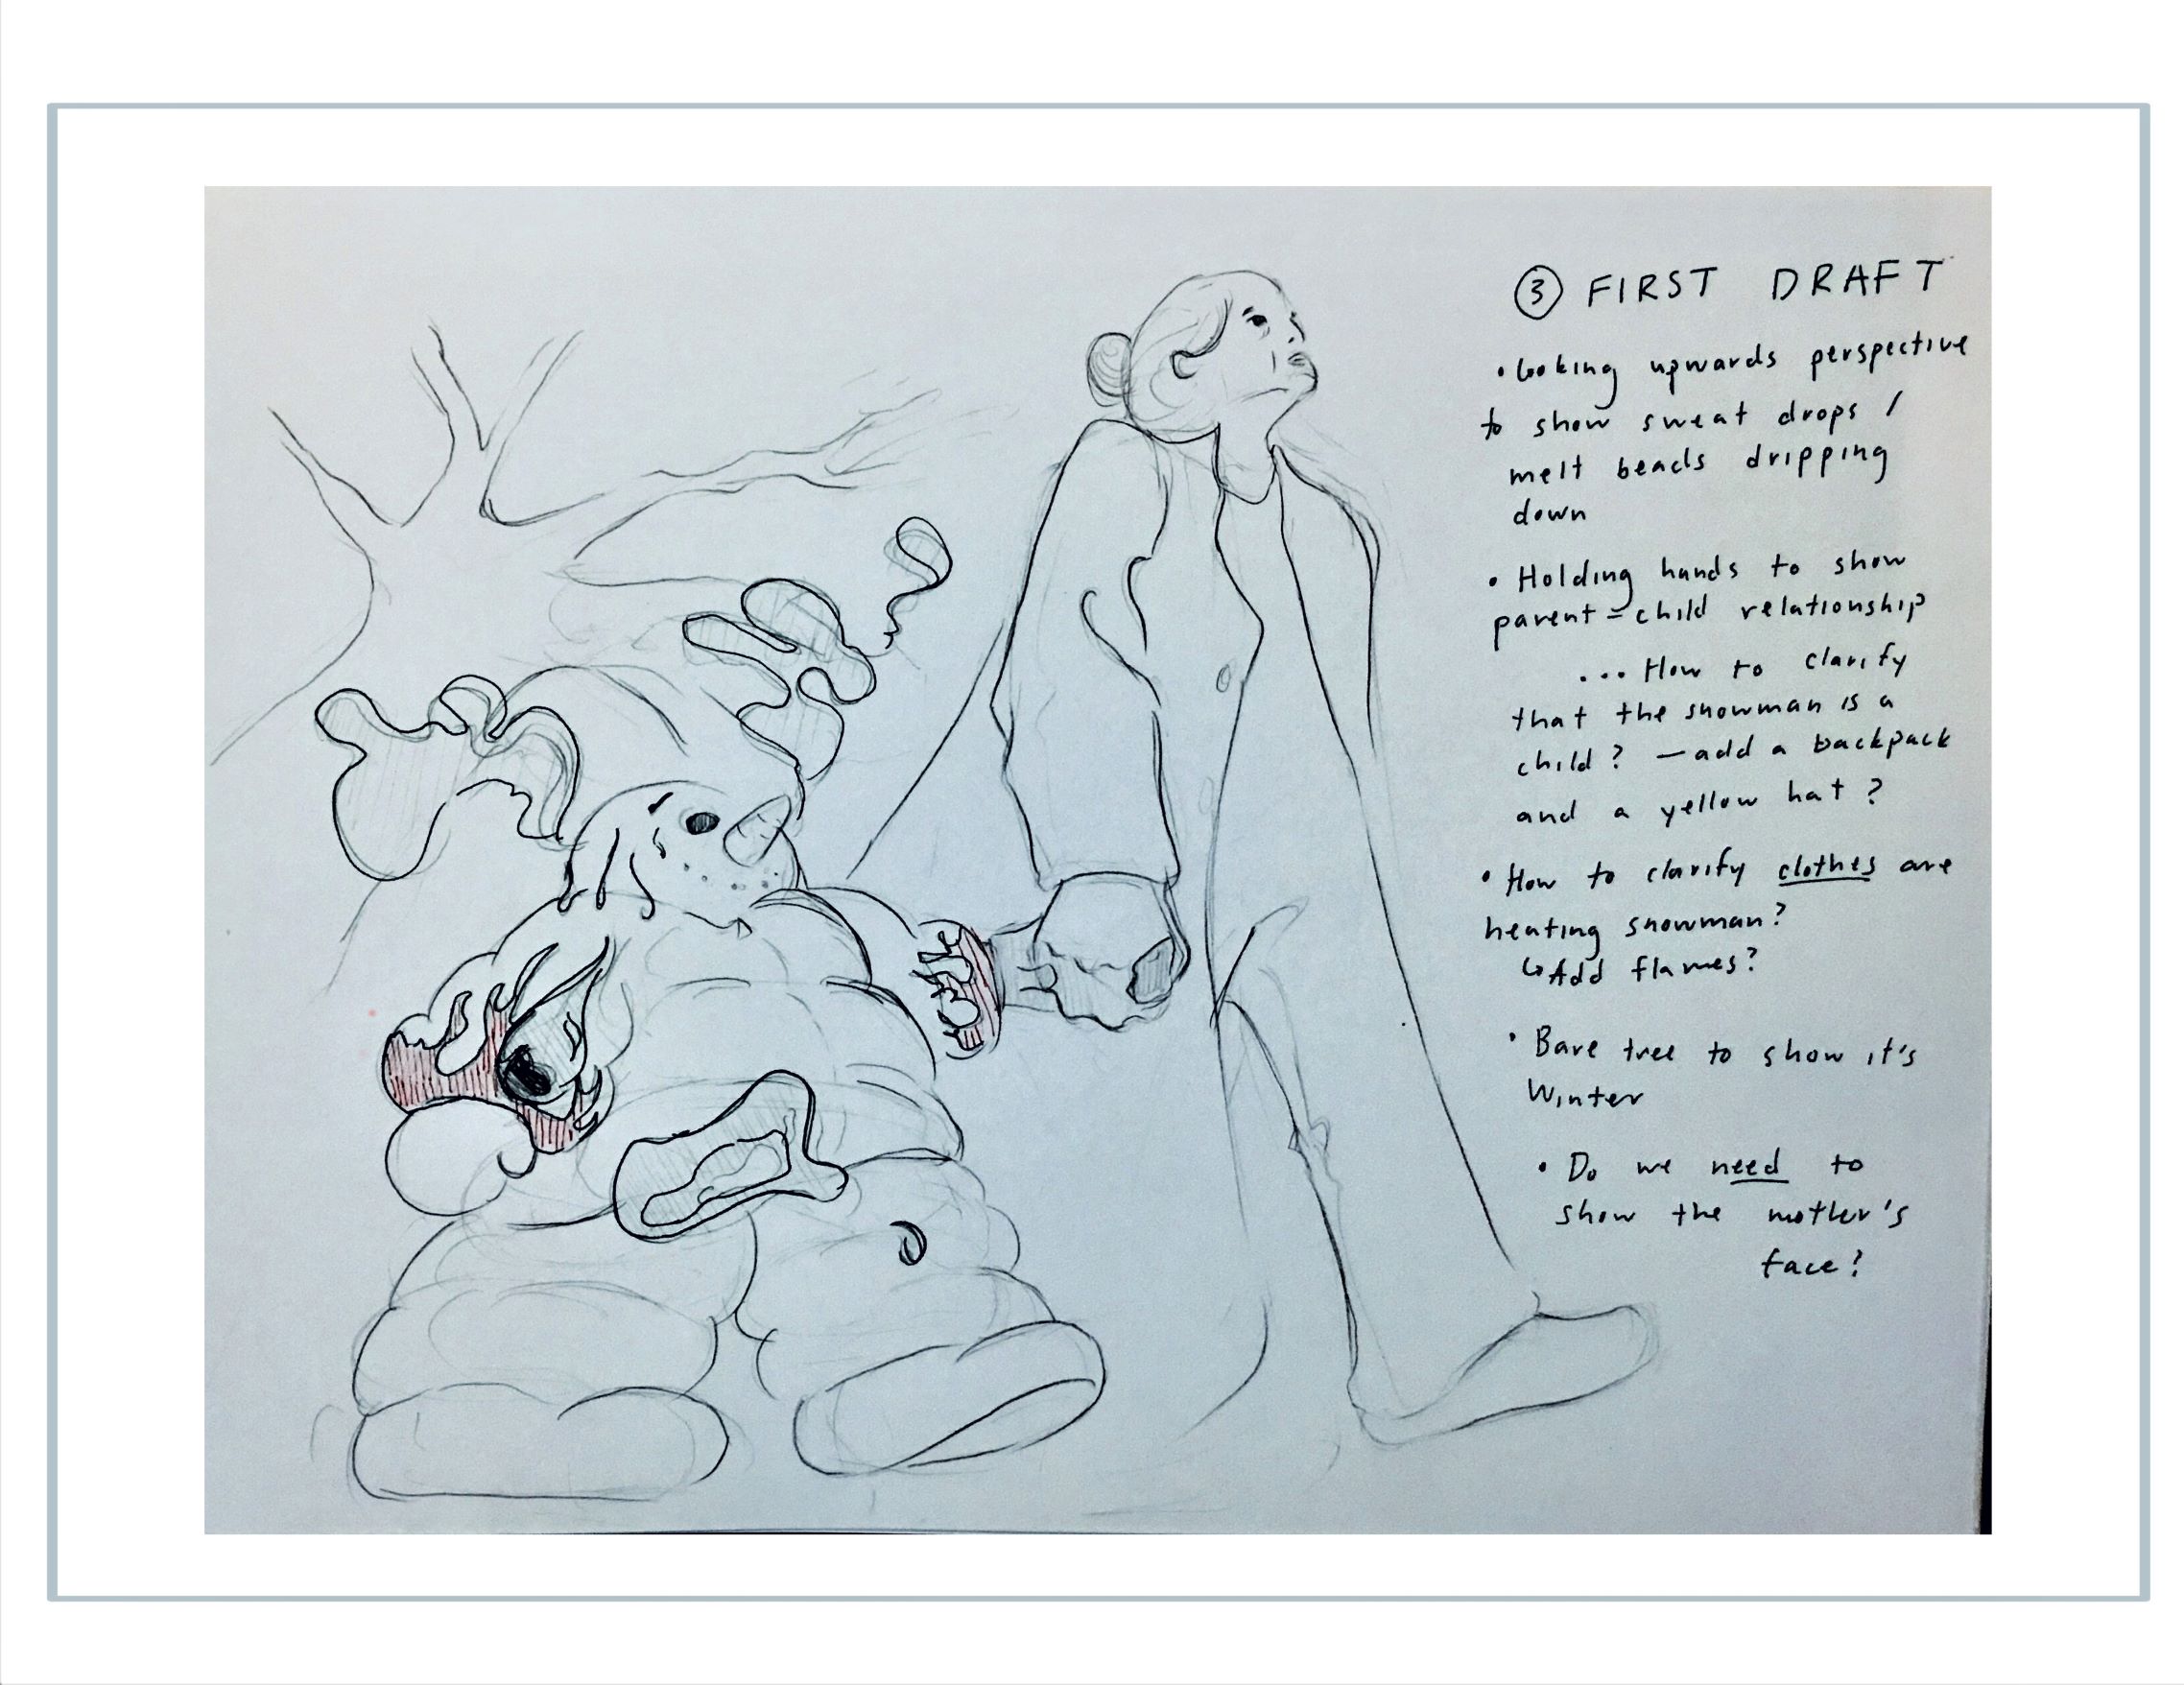 ③ FIRST DRAFT
• Looking upwards perspective
to show sweat drops /
melt beads dripping
down
• Holding hands to show
parent-child relationship
... How to clarify
that the snowman is a
child? – add a backpack
and a yellow hat?
• How to clarify clothes are
heating snowman?
↳ Add flames?
• Bare tree to show it's
Winter
• Do we need to
show the mother's
face?